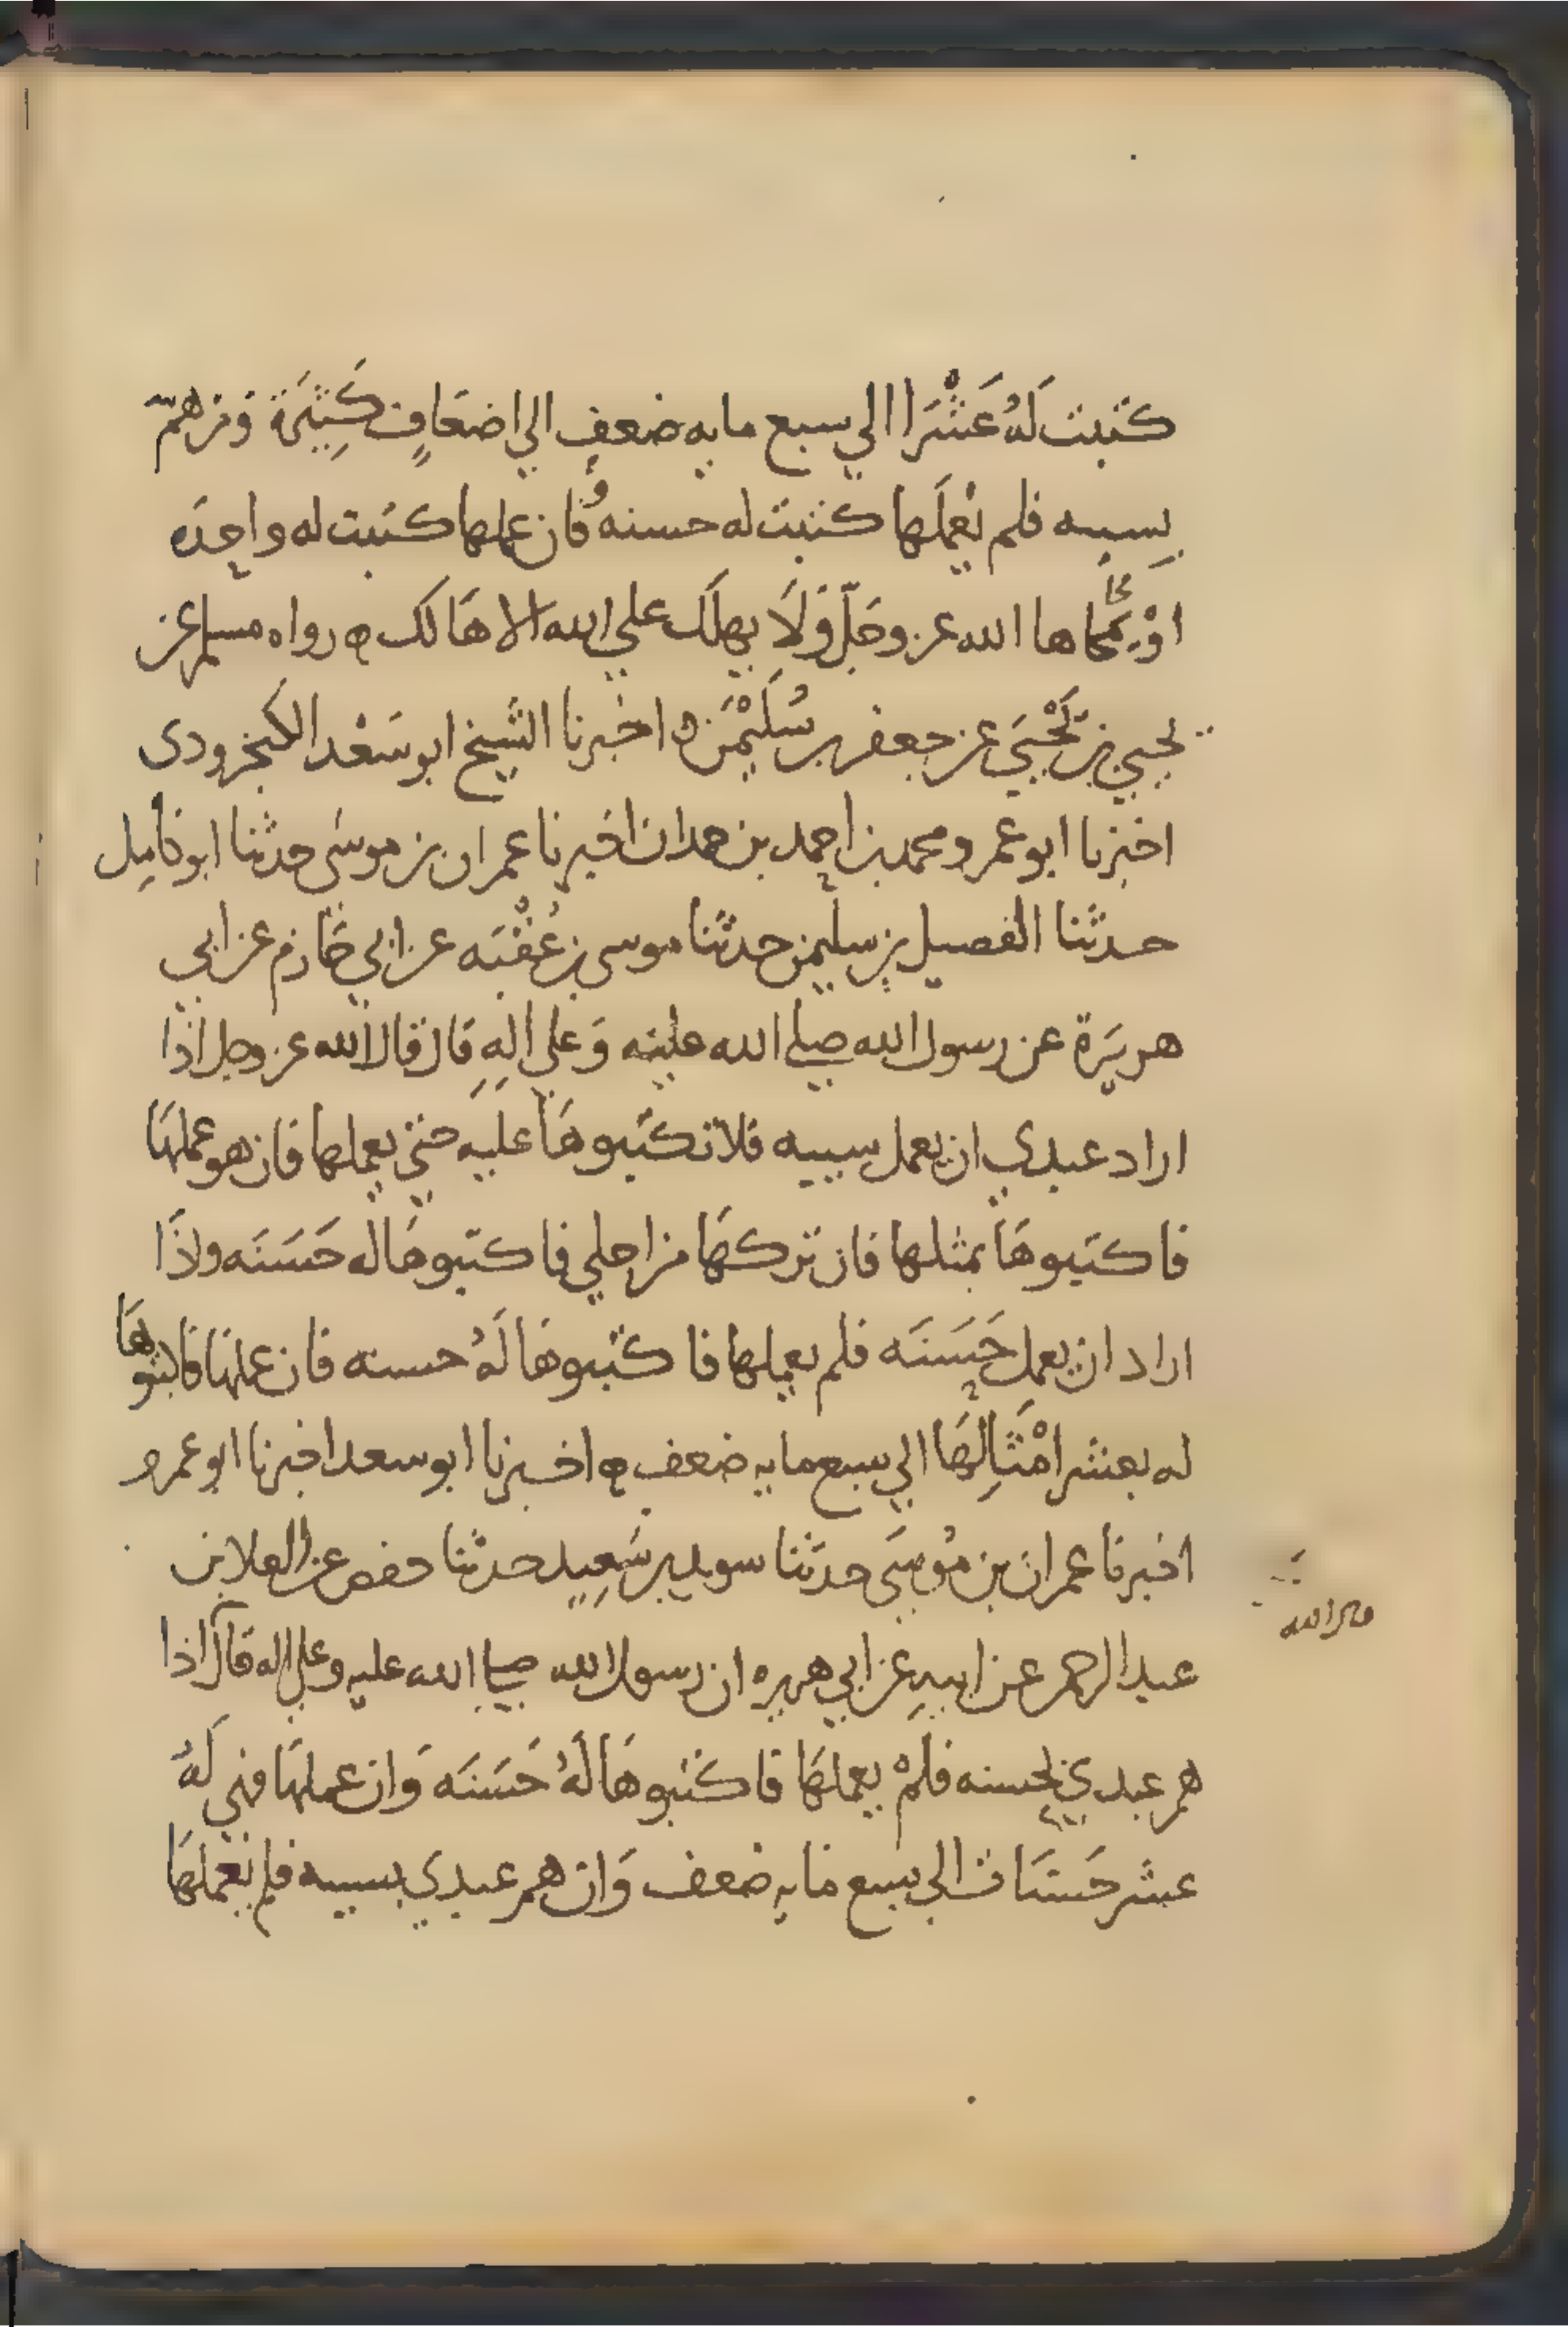 كتبت لَهُ عَشْرَا الي سبع مايه ضعفٍ الي اضعَافٍ كَثِيَرة وَمن همّ
بِسيه فلم يَعْمَلَها كتبت له حسنه وَفان عملها كتبت له واحِدَه
اوْ يمحاها الله عز وجَلّ وَلَا يهلَك علي الله الا هَالك ه رواه مسلم عن
يحيي بن يَحْيَي عن جعفر بن سُلَيْمَن ه اخبرنا الشَيخ ابو سَعْد الكنجرودى
اخبرنا ابو عمرو محمد بن احمد بن حمدان اخبرنا عمران بن موسى حدثنا ابو كامِل
حدثنا الفضيل بن سليمن حدثنا موسى بن عُقْبَه عن ابي حَازم عن ابي
هريَرة عن رسول الله صلى الله عليه وَعلى الِهِ قال قال الله عز وجل اذا
اراد عبدي ان يعمل سييه فلا تكتبوهَا عليه حتي يعملها فان هو عملهَا
فاكتبوهَا بمثلها فان تركهَا من اجلي فاكتبوهَا له حَسَنَه واذَا
اراد ان يعمل حَسَنَه فلم يعملها فاكتبوهَا لَهُ حسنه فان عملهَا فاكتبوهَا
له بعشر امْثَالِهَا الي سبع مايه ضعف ه اخبرنا ابو سعد اخبرنا ابو عمرو
اخبرنا عمران بن مُوسَى حدثنا سويد بن سَعِيدٍ حدثنا حفص عن العلا بن
عبد الرحمن عن ابيهِ عن ابي هريره ان رسول الله صلى الله عليه وعلى اله قال اذا
هم عبدي بحسنه فلَمْ يعملهَا فاكتبوهَا لَهُ حَسَنَه وَان عملهَا فهي لَهُ
عشر حَسَنَات الى سبع مايه ضعف وَان هم عبدي بسييه فلم يَعْملهَا